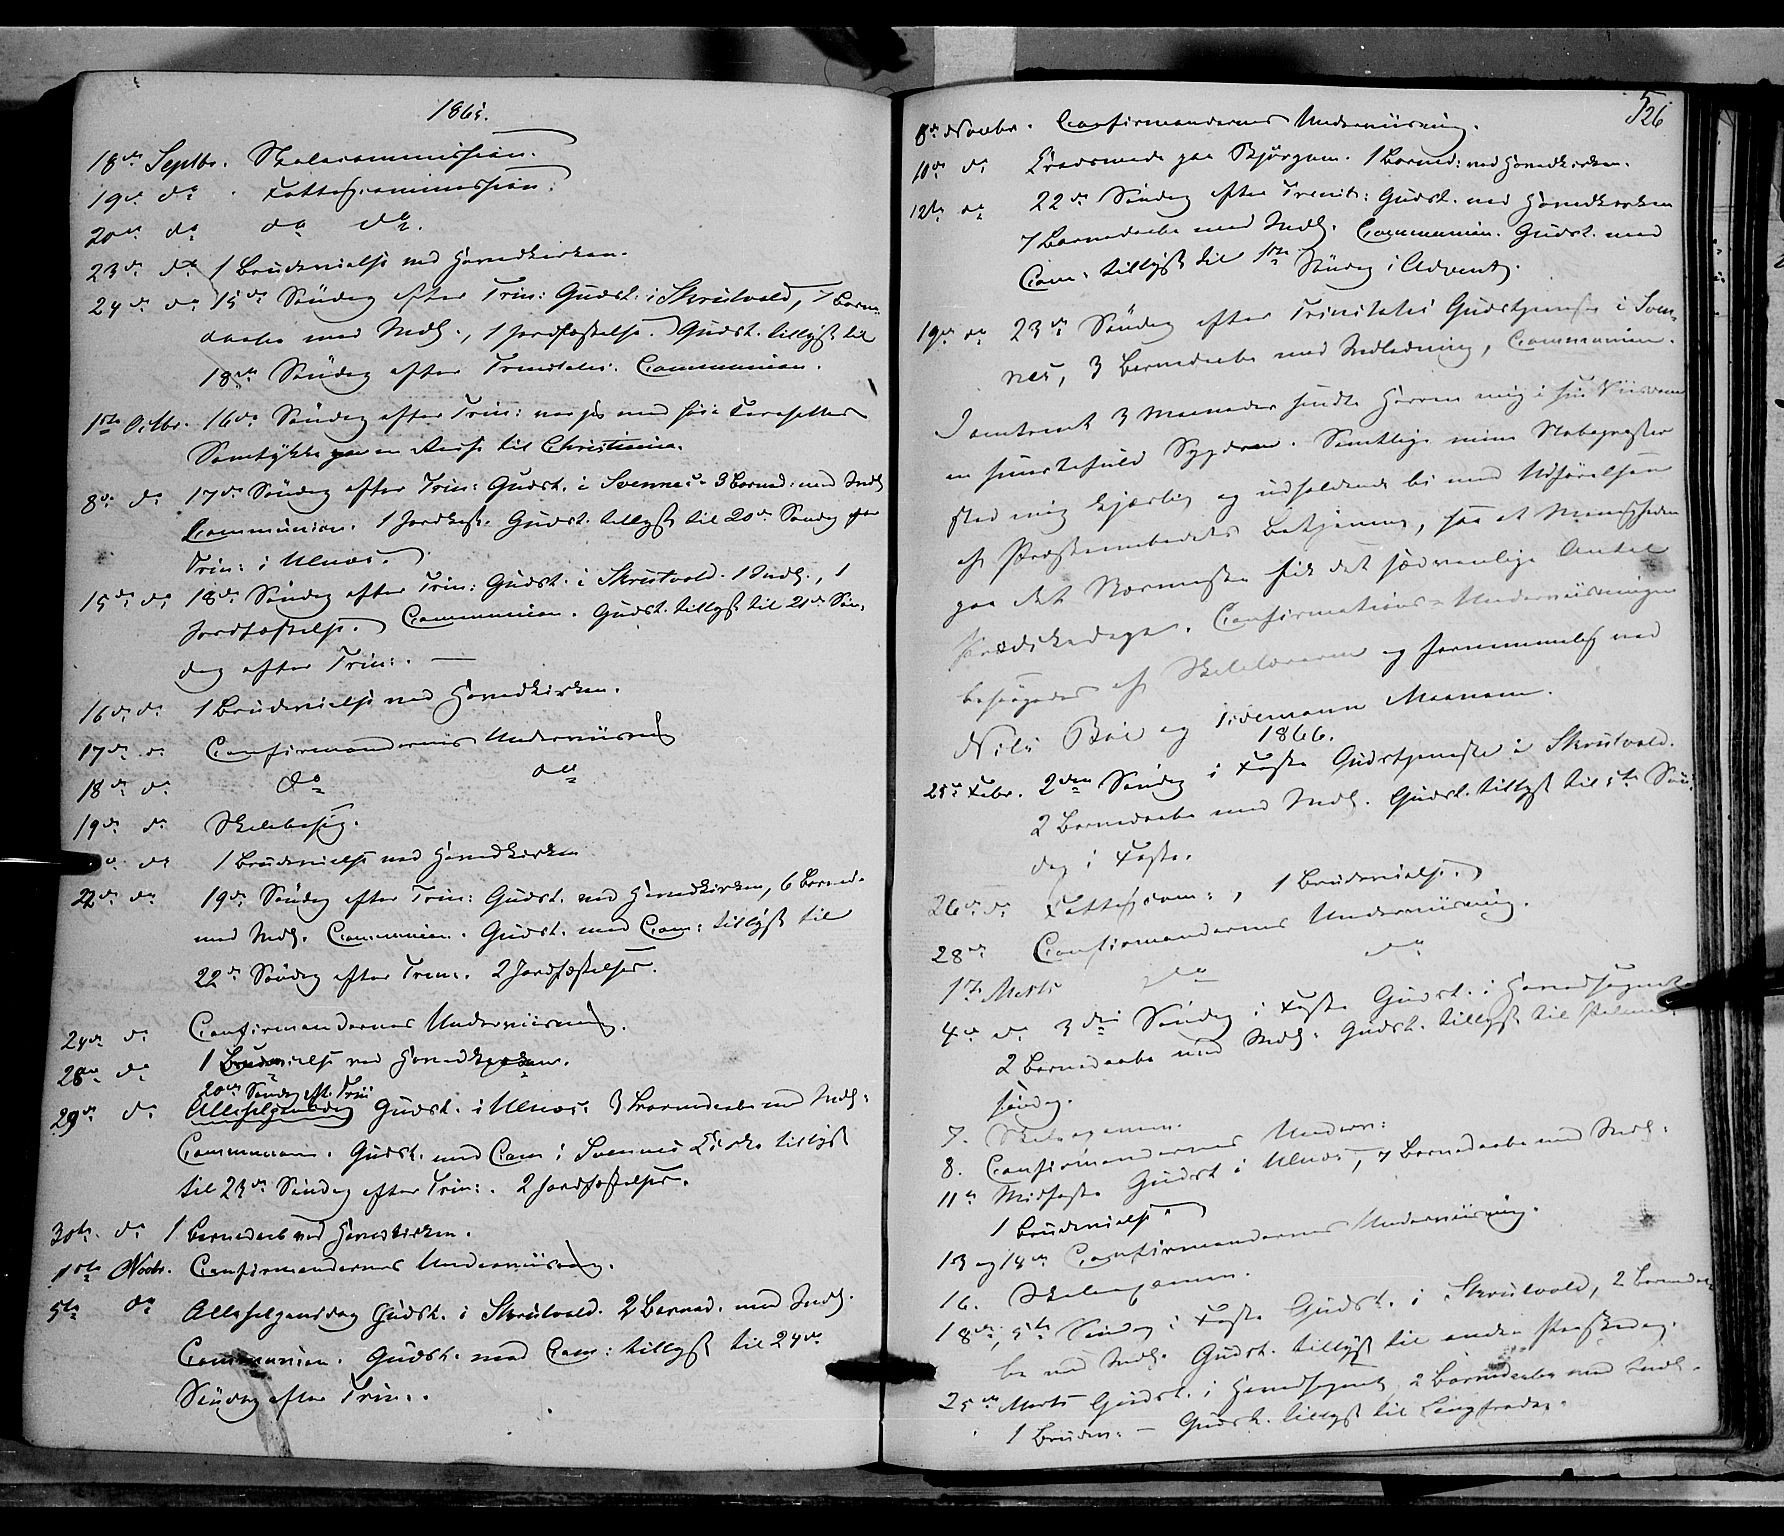 1865.
18de Septbr. Skolecommission.
19de do . Fattigcommission.
20de do do do.
23de do 1 Brudevielse ved Hovedkirken.
24de do 15de Søndag efter Trin: Gudst. i Skrutvold, 7 Barne-
daabe med Indl., 1 Jordfæstelse. Gudst. tillyst til
18de Søndag efter Trinitatis. Communion.
1ste Octbr. 16de Søndag efter Trin:
Samtykke paa en Reise til Christiania.
8de do 17de Søndag efter Trin: Gudst. i Svennes. 3 Barned: med Indl.
Communion. 1 Jordfæst. Gudst. tillyst til 20de Søndag
Trin: i Ulnæs.
15de do 18de Søndag efter Trin: Gudst. i Skrutvold. 1 Indl., 1
Jordfæstelse. Communion. Gudst. tillyst til 21de Søn-
dag efter Trin:. —
16de do 1 Brudevielse ved Hovedkirken.
17de do Confirmandernes Underviisning
18de do do do
19de do Skolebesøg.
do 1 Brudevielse ved Hovedkirken
22de do 19de Søndag efter Trin: Gudst. ved Hovedkirken, 6 Barned.
med Indl. Communion. Gudst. med Com: tillyst til
22de Søndag efter Trin:. 2 Jordfæstelser.
24de do Confirmandernes Underviisning.
28de do 1 Brudevielse ved Hovedkirken.
20de Søndag eft. Trin
29de do Allehelgensdag Gudst. i Ulnæs. 3 Barnedaabe med Indl:
Communion. Gudst. med Com i Svennes Kirke tillyst
til 23de Søndag efter Trin:. 2 Jordfæstelser.
30te do 1 Barnedaab ved Hovedkirken.
1ste Novbr. Confirmandernes Underviisning.
5te do Allehelgensdag Gudst. i Skrutvold. 2 Barned. med Indl.
Communion. Gudst. med Com: tillyst til 24de
Søndag efter Trin:.
526
8de Novbr. Confirmandernes Underviisning.
10de do paa Bjørgum. 1 Barned: ved Hovedkirken.
12te do 22de Søndag efter Trinit: Gudst. ved Hovedkirken
7 Barnedaabe med Indl. Communion. Gudst. med
Com: tillyst til 1ste Søndag i Advent.
19de do 23de Søndag efter Trinitatis Gudstjeneste i Sven-
nes, 3 Barnedaabe med Indledning, Communion.
I omtrent 3 Maaneder sendte Herren mig i sin Viisdom
en smertefuld Sygdom. Samtlige mine Nabopræster
stod mig kjærlig og udholdende bi med Udførelsen
af Præsteembedets Betjening, saa at Menigheden
paa det Nærmeste fik det sædvanlige Antal
Prædikedage. Confirmations-Underviisningen
besørgedes af Skolelærerne og fornemmelig ved
Nils Bøe og Tidemann Moanom.
1866.
25de Febr. 2den Søndag i Faste Gudstjeneste i Skrutvold.
2 Barnedaabe med Indl. Gudst. tillyst til 5te Søn-
dag i Faste.
26de do Fattigcom:, 1 Brudevielse.
28de Confirmandernes Underviisning.
1ste Marts do do
4de do 3die Søndag i Faste Gudst. i Hovedsognet
2 Barnedaabe med Indl: Gudst. tillyst til Palme-
søndag.
7. Skoleexamen.
8. Confirmandernes Underv:
11te Midfaste Gudst i Ulnæs, 7 Barnedaabe med Indl:
1 Brudevielse
13 og 14de Confirmandernes Underviisning.
16. Skoleexamen.
18de, 5te Søndag i Faste Gudst. i Skrutvold, 2 Barnedaa-
be med Indl. Gudst. tillyst til anden Paaskedag.
25de Marts Gudst. i Hovedsognet, 2 Barnedaabe med Indl.
1 Brudev: — Gudst. tillyst til Langfredag.